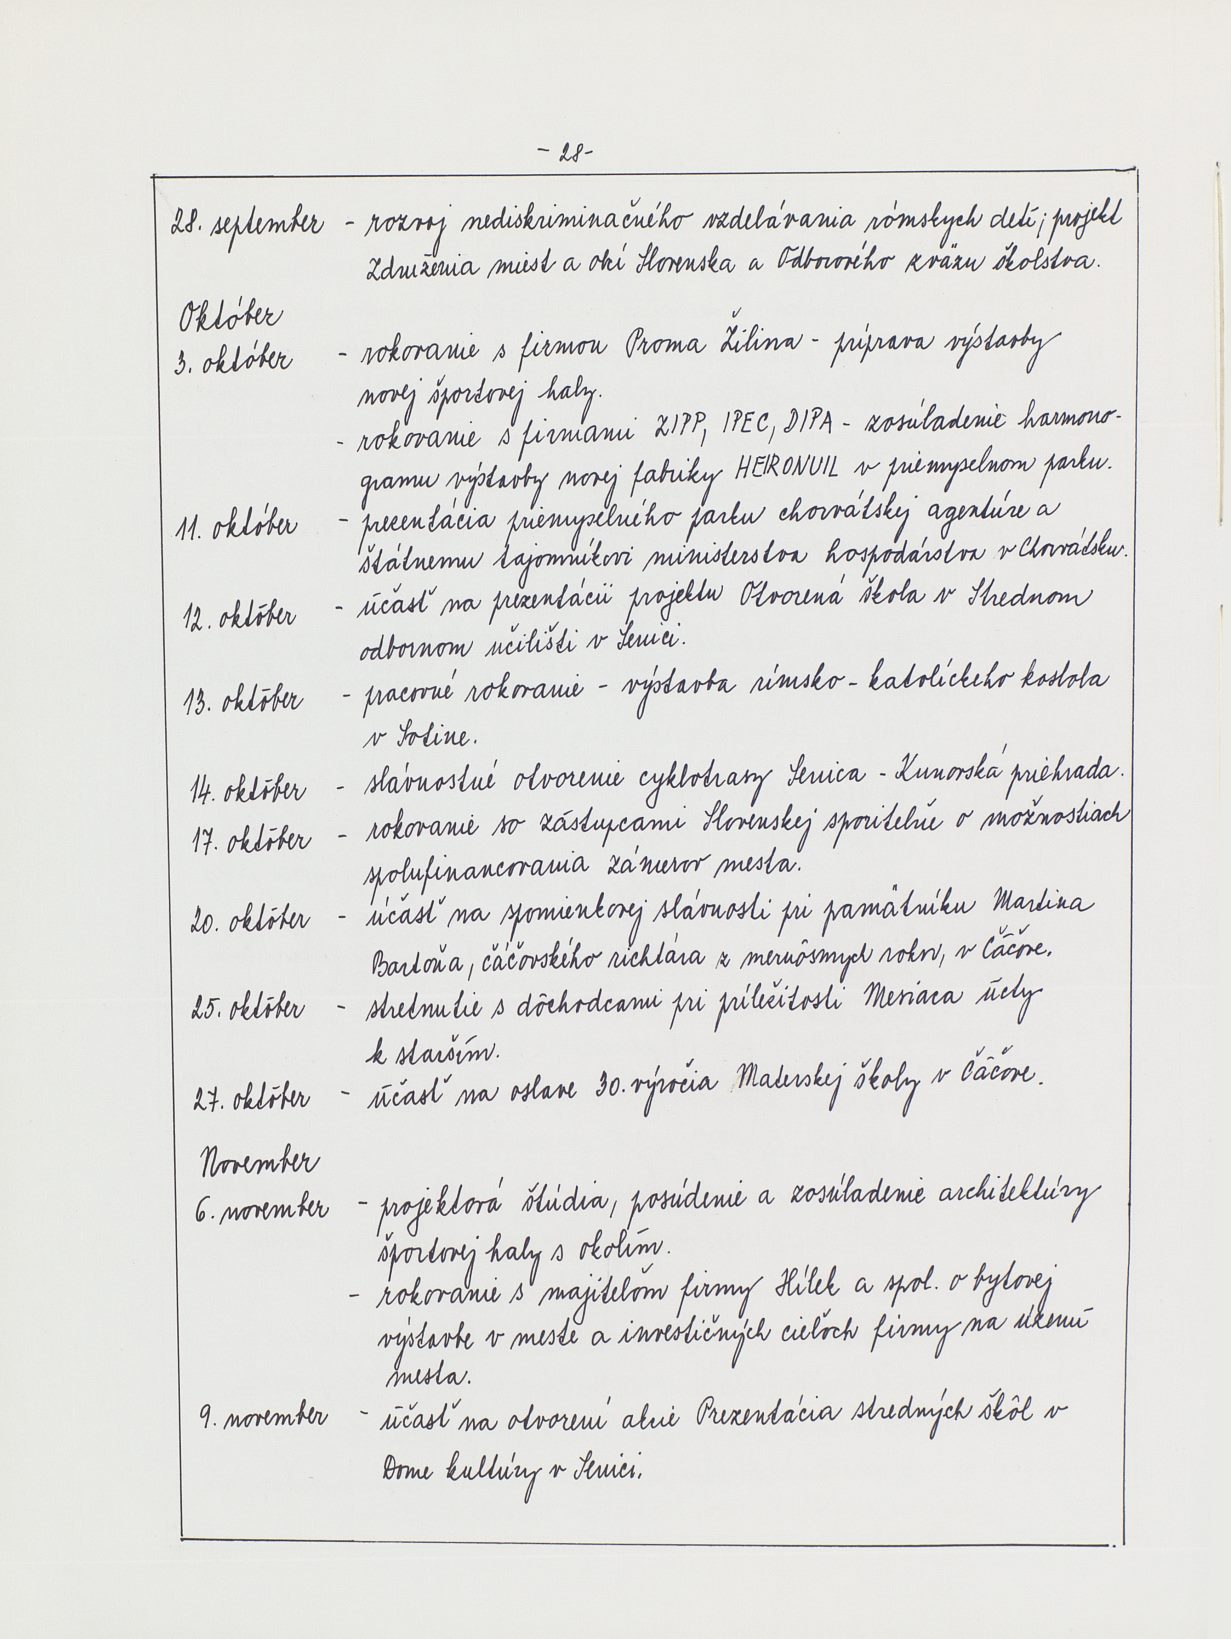 - 28 -
28. september - rozvoj nediskriminačného vzdelávania rómskych detí; projekt
Združenia miest a obcí Slovenska a Odborového zväzu školstva.
Október
3. október - rokovanie s firmou Proma Žilina - príprava výstavby
novej športovej haly.
- rokovanie s firmami ZIPP, IPEC, DIPA - zosúladenie harmono-
gramu výstavby novej fabriky HEIRONVIL v priemyselnom parku.
11. október - prezentácia priemyselného parku chorvátskej agentúre a
štátnemu tajomníkovi ministerstva hospodárstva v Chorvátsku.
12. október - účasť na prezentácii projektu Otvorená škola v Strednom
odbornom učilišti v Senici.
13. október - pracovné rokovanie - výstavba rímsko-katolíckeho kostola
v Sotine.
14. október - slávnostné otvorenie cyklotrasy Senica - Kunovská priehrada.
17. október - rokovanie so zástupcami Slovenskej sporiteľne o možnostiach
spolufinancovania zámerov mesta.
20. október - účasť na spomienkovej slávnosti pri pamätníku Martina
Bartoňa, čáčovského richtára z meruôsmych rokov, v Čáčove.
25. október - stretnutie s dôchodcami pri príležitosti Mesiaca úcty
k starším.
27. október - účasť na oslave 30. výročia Materskej školy v Čáčove.
November
6. november - projektová štúdia, posúdenie a zosúladenie architektúry
športovej haly s okolím.
- rokovanie s majiteľom firmy Hílek a spol. o bytovej
výstavbe v meste a investičných cieľoch firmy na území
mesta.
9. november - účasť na otvorení akcie Prezentácia stredných škôl v
Dome kultúry v Senici.